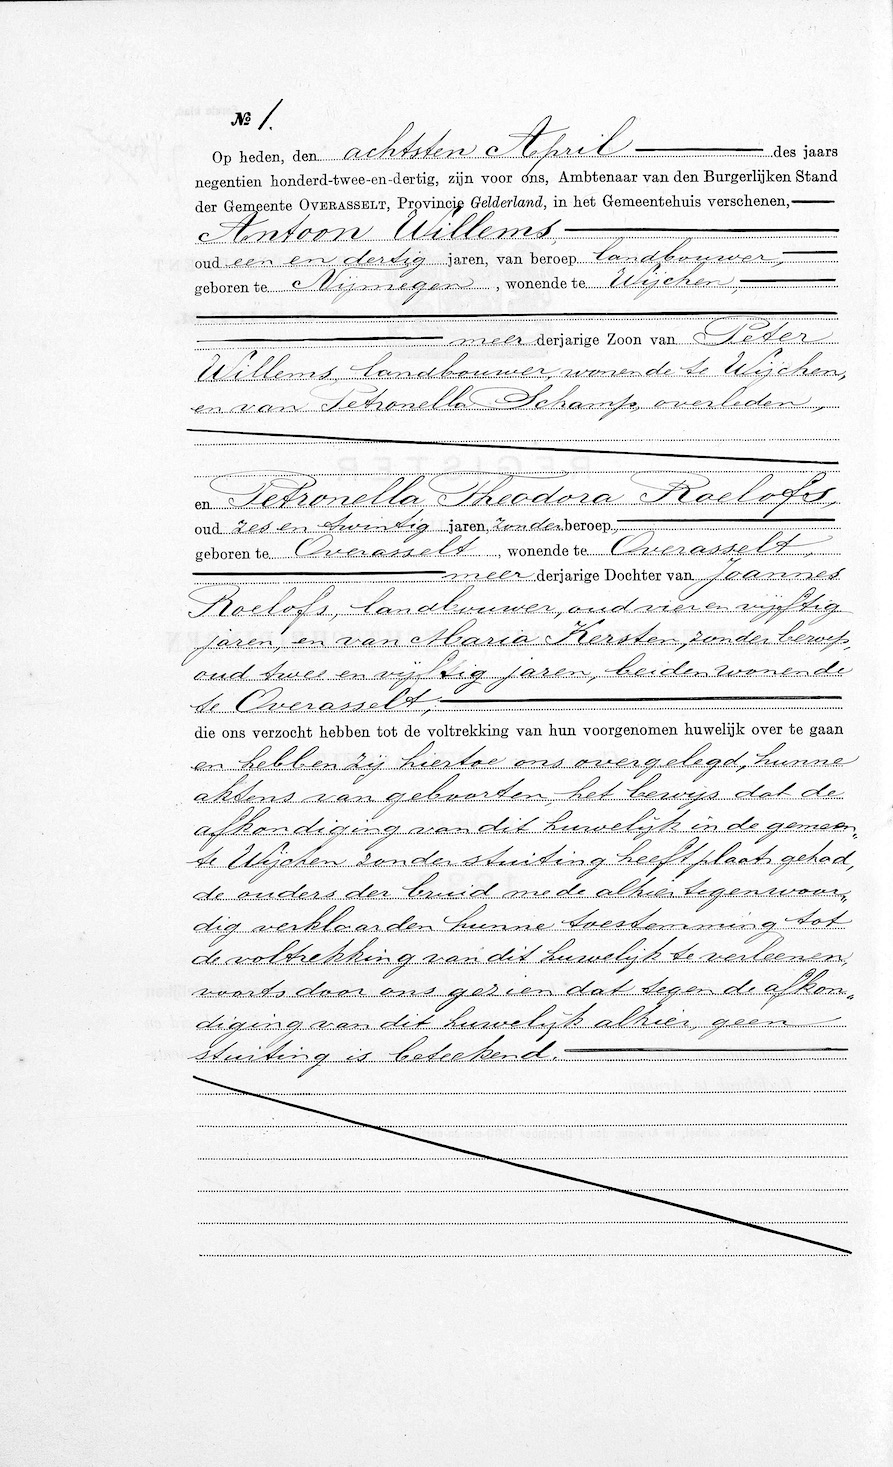 № 1.
Op heden, den achtsten April des jaars
negentien honderd-twee-en-dertig, zijn voor ons, Ambtenaar van den Burgerlijken Stand
der Gemeente OVERASSELT, Provincie Gelderland, in het Gemeentehuis verschenen,
Antoon Willems,
oud een en dertig jaren, van beroep landbouwer,
geboren te Nijmegen, wonende te Wijchen,
meerderjarige Zoon van Peter
Willems, landbouwer, wonende te Wijchen,
en van Petronella Schamp, overleden,
en Petronella Theodora Roelofs,
oud zes en twintig jaren, zonder beroep,
geboren te Overasselt, wonende te Overasselt,
meerderjarige Dochter van Joannes
Roelofs, landbouwer, oud vier en vijftig
jaren, en van Maria Kersten, zonder beroep,
oud twee en vijftig jaren, beiden wonende
te Overasselt,
die ons verzocht hebben tot de voltrekking van hun voorgenomen huwelijk over te gaan
en hebben zij hiertoe ons overgelegd, hunne
aktens van geboorten, het bewijs dat de
afkondiging van dit huwelijk in de gemeen„
te Wijchen zonder stuiting heeft plaats gehad,
de ouders der bruid mede alhier tegenwoor„
dig verklaarden hunne toestemming tot
de voltrekking van dit huwelijk te verleenen,
voorts door ons gezien dat tegen de afkon„
diging van dit huwelijk alhier, geen
stuiting is beteekend.